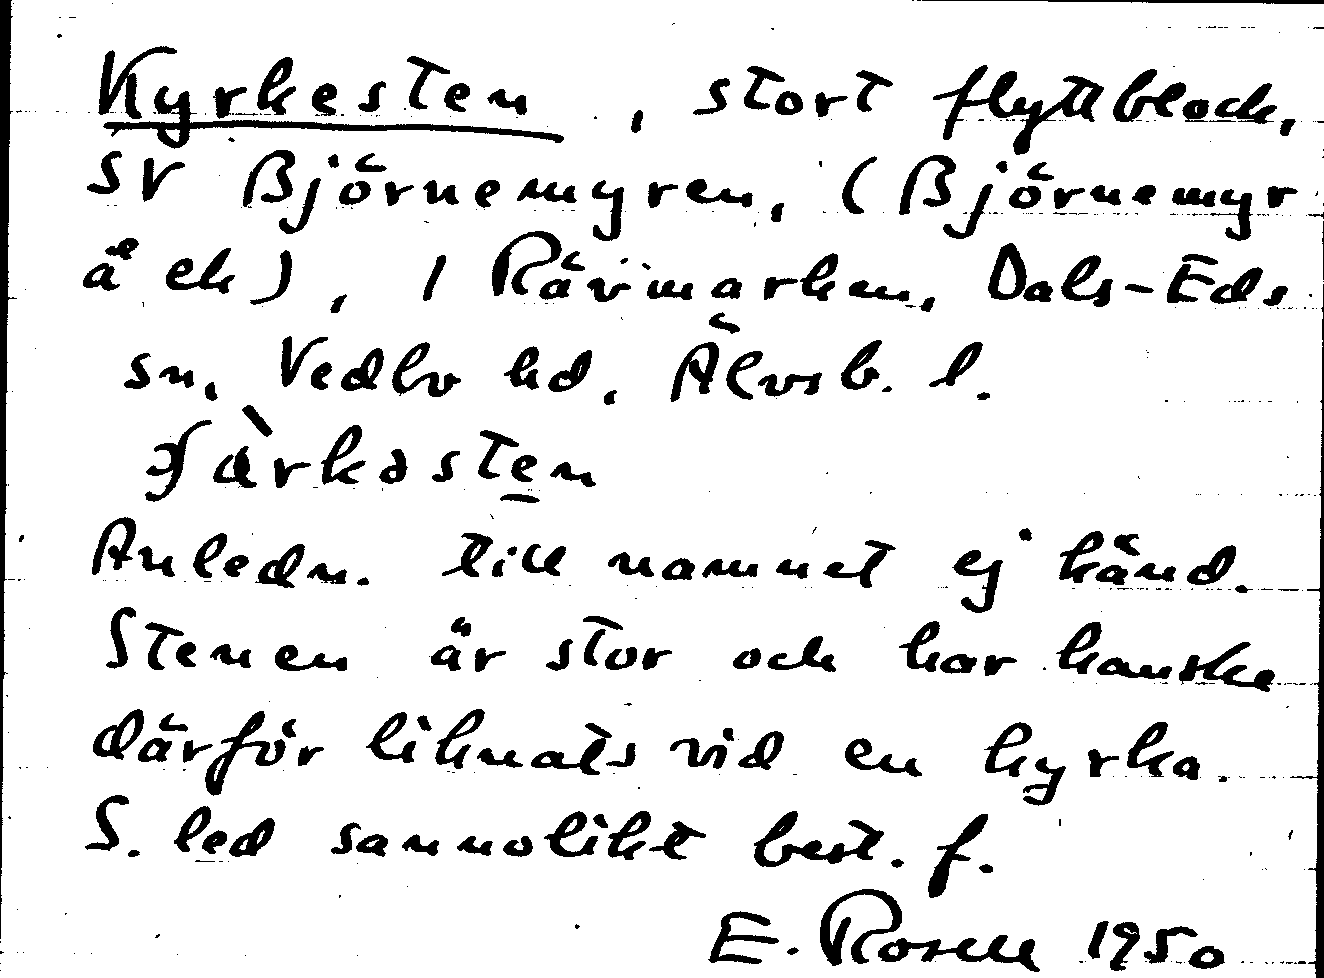 Kyrkesten, stort flyttblock,
SV Björnemyren, (Björnemyr
å ek), i Rävmarken, Dals-Eds
sn, Vedbo hd, Älvsb. l.
Anledn. till namnet ej känd.
Stenen är stor och har kanske
därför liknats vid en kyrka.
S. led sannolikt best. f.
E. Rosell 1950